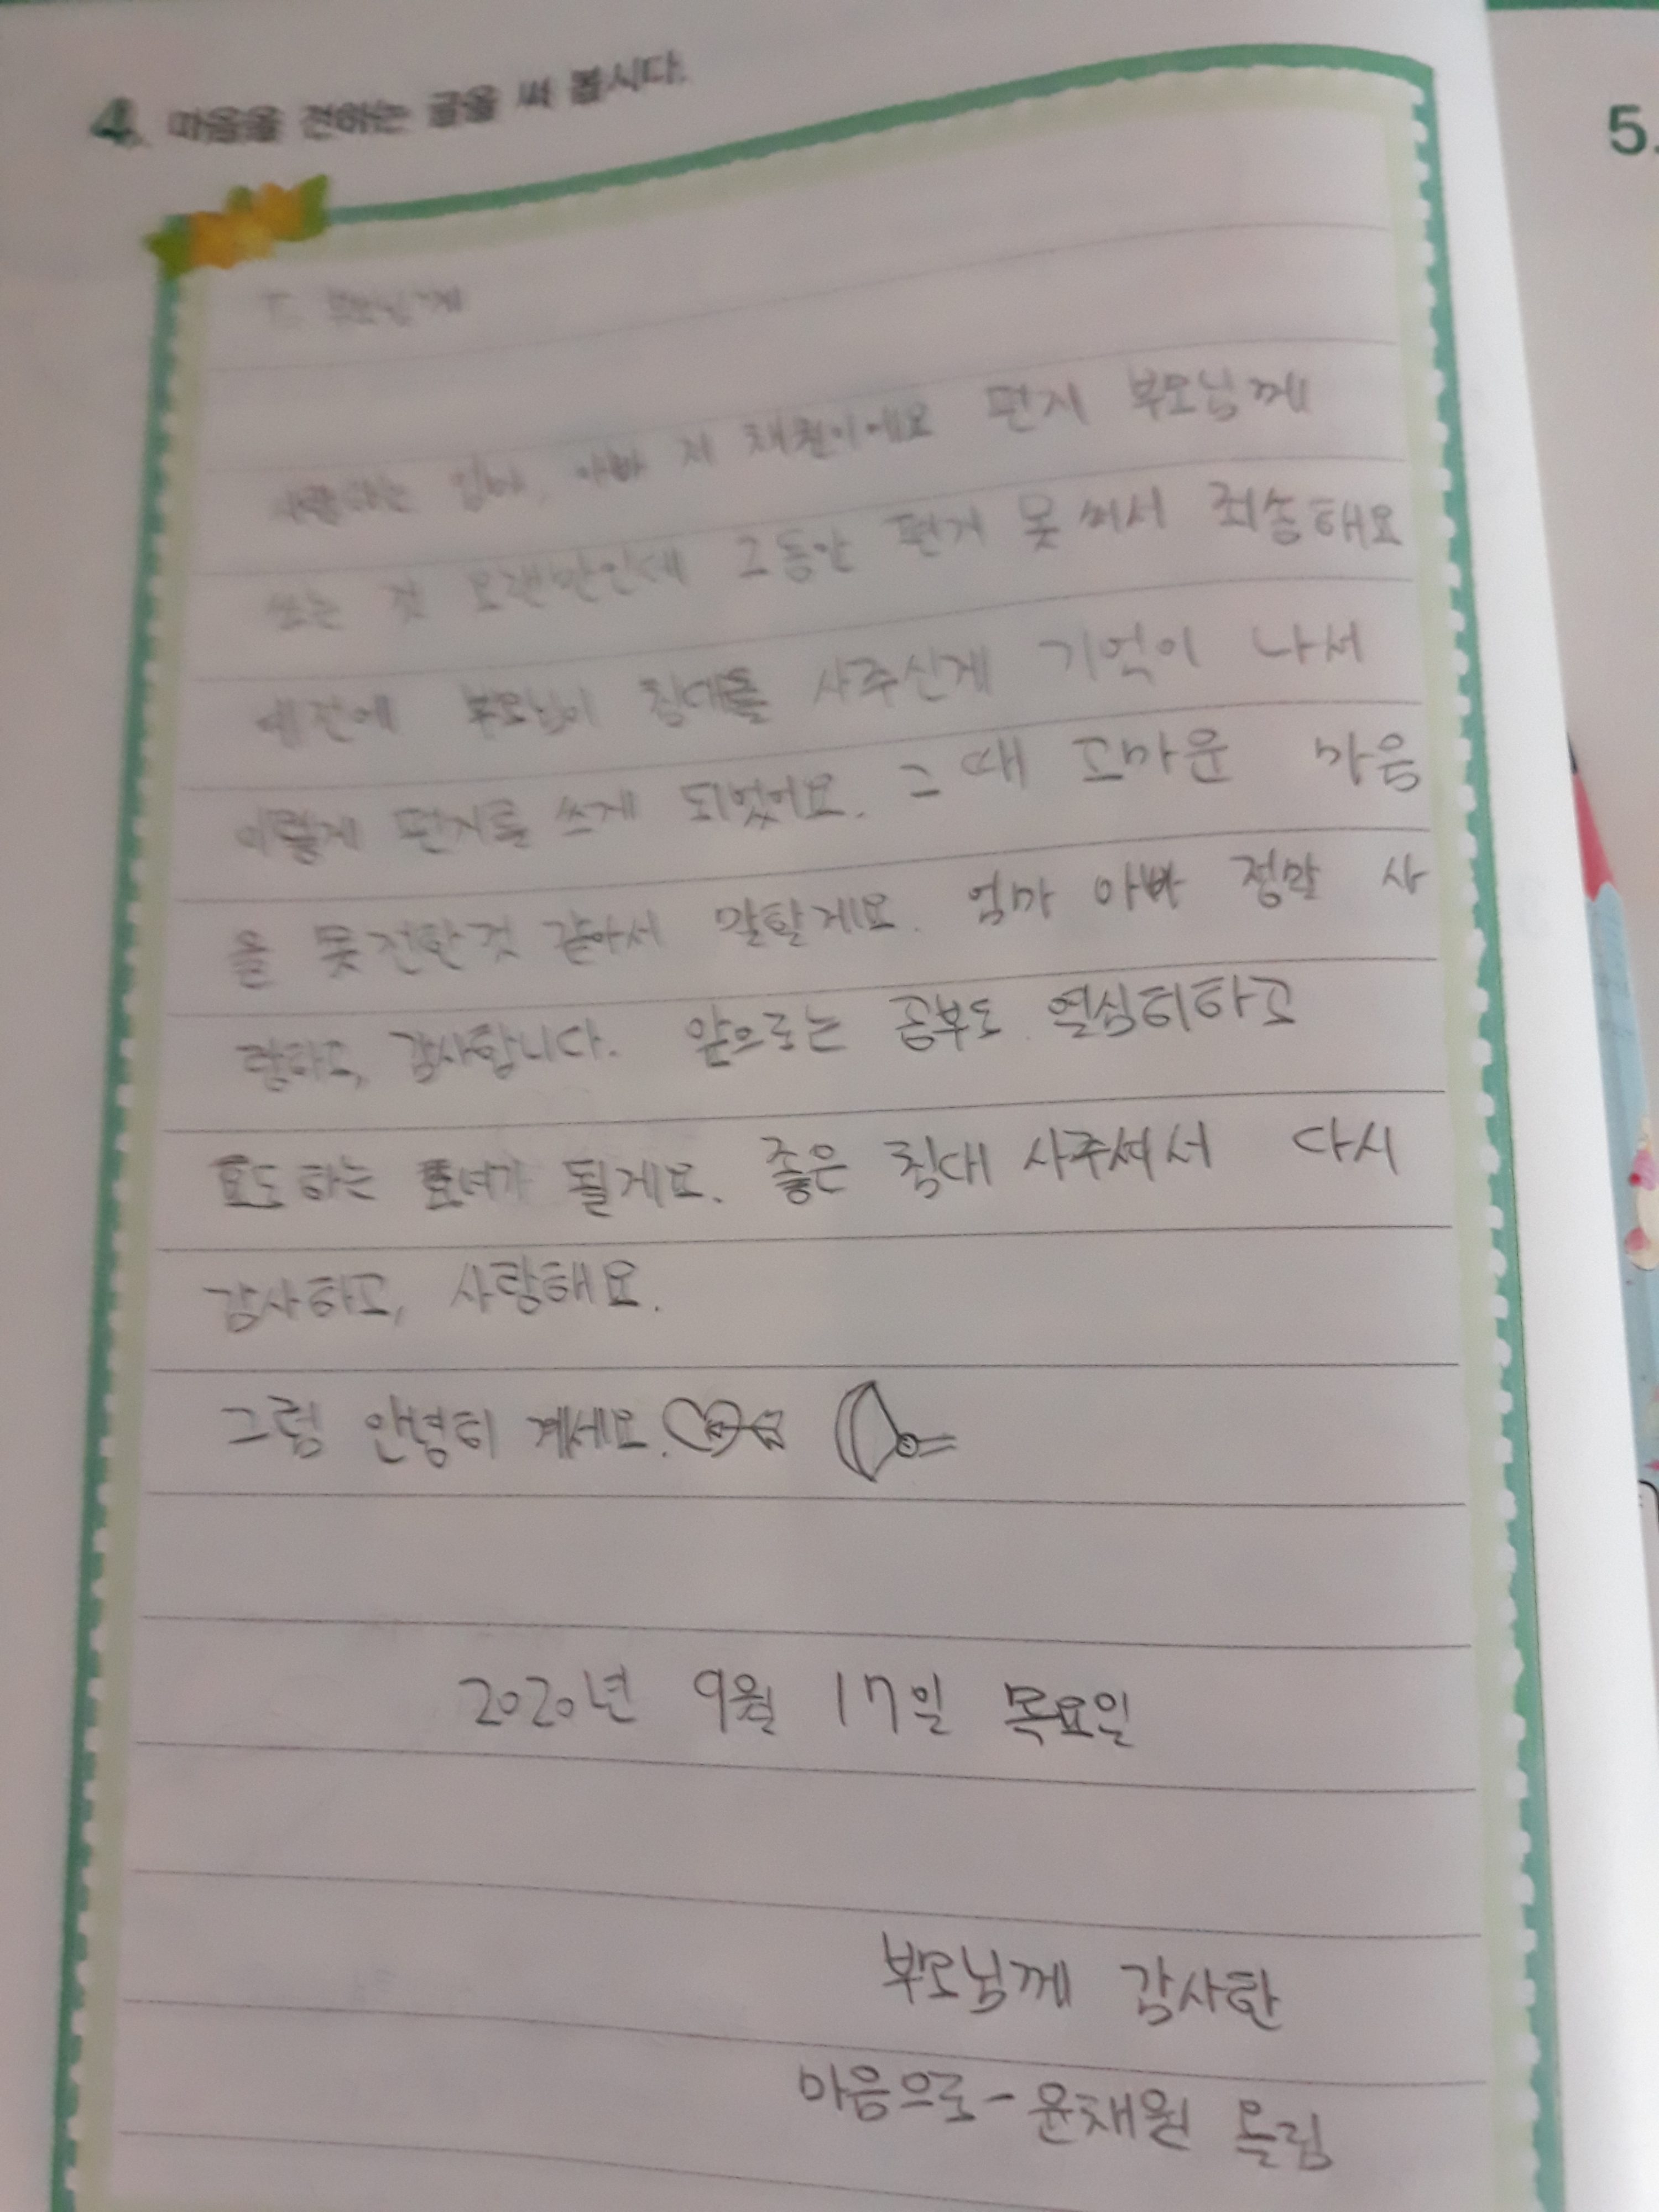 4. 마음을 전하는 글을 써 봅시다.
5.
부모님께
사랑하는 엄마, 아빠 저 채원이에요 편지 부모님께
쓰는 것 오랜만인데 그동안 편지 못 써서 죄송해요
예전에 부모님이 침대를 사주신게 기억이 나서
이렇게 편지를 쓰게 되었어요. 그 때 고마운 마음
을 못전한것 같아서 말할게요. 엄마 아빠 정말 사
랑하고, 감사합니다. 앞으로는 공부도 열심히하고
효도하는 효녀가 될게요. 좋은 침대 사주셔서 다시
감사하고, 사랑해요.
그럼 안녕히 계세요.
2020년 9월 17일 목요일
부모님께 감사한
마음으로 - 윤채원 올림